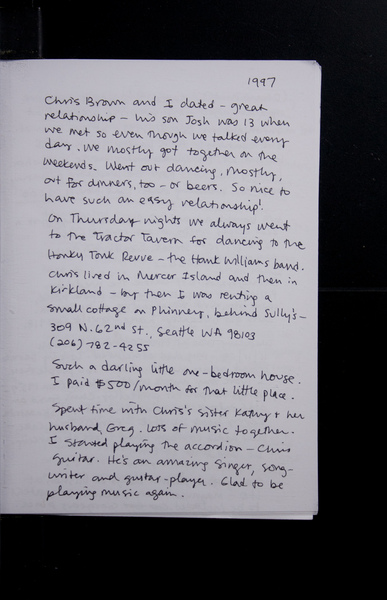 1997
Chris Brown and I dated - great
relationship - his son Josh was 13 when
we met so even though we talked every
day, we mostly got together on the
weekends. Went out dancing, mostly,
out for dinners, too - or beers. So nice to
have such an easy relationship!
On Thursday nights we always went
to the Tractor Tavern for dancing to the
Honky Tonk Revue - the Hank Williams band.
Chris lived in Mercer Island and then in
Kirkland - by then I was renting a
small cottage on Phinney, behind Sully's -
309 N. 62nd St., Seattle WA 98103
(206) 782-4255
Such a darling little one-bedroom house.
I paid $500/month for that little place.
Spent time with Chris's sister Kathy + her
husband, Greg. Lots of music together.
I started playing the accordion - Chris
guitar. He's an amazing singer, song-
writer and guitar-player. Glad to be
playing music again.